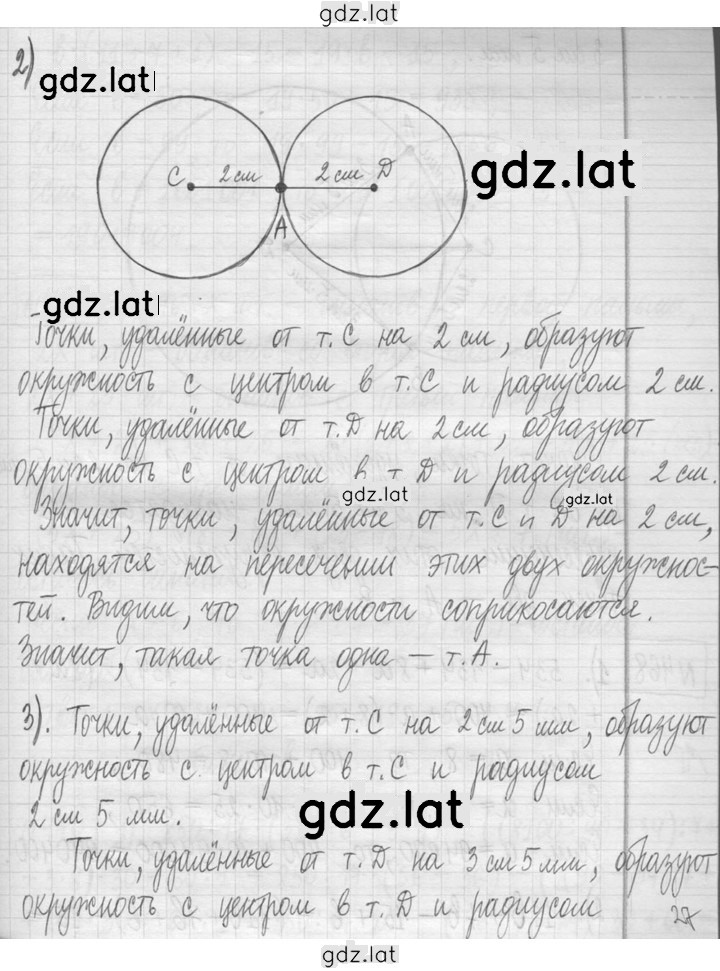 gdz.lat
2)
gdz.lat
С 2 см 2 см D
gdz.lat
А
gdz.lat
Точки, удалённые от т. С на 2 см, образуют
окружность с центром в т. С и радиусом 2 см.
Точки, удалённые от т. D на 2 см, образуют
окружность с центром в т D и радиусом 2 см.
gdz.lat
gdz.lat
Значит, точки, удалённые от т. С и D на 2 см,
находятся на пересечении этих двух окружнос-
тей. Видим, что окружности соприкосаются.
Значит, такая точка одна – т. А.
3). Точки, удалённые от т. С на 2 см 5 мм, образуют
окружность с центром в т. С и радиусом
2 см 5 мм.
gdz.lat
Точки, удалённые от т. D на 3 см 5 мм, образуют
окружность с центром в т. D и радиусом
27
gdz.lat